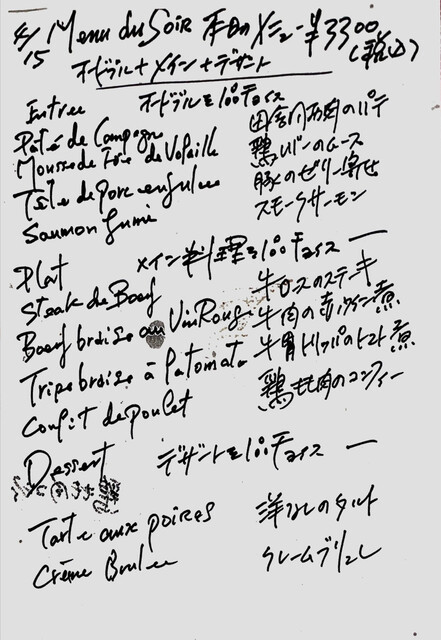 4/15 Menu du Soir 本日のメニュー ¥3300 (税込)
オードブル+メイン+デザート
Entree オードブルを1つチョイス
Paté de Campagne 田舎風お肉のパテ
Mousse de Foie de Volaille 鶏レバーのムース
Tête de porc en gelee 豚のゼリー寄せ
Saumon fumé スモークサーモン
Plat メイン料理を1つチョイス
Steak de Boeuf 牛ロースのステーキ
Boeuf braise au Vin Rouge 牛肉の赤ワイン煮
Tripe braise à la tomate 牛胃トリッパのトマト煮
Confit de poulet 鶏もも肉のコンフィー
Dessert デザートを1つチョイス
Tarte aux poires 洋なしのタルト
Crème Brulee クレームブリュレ